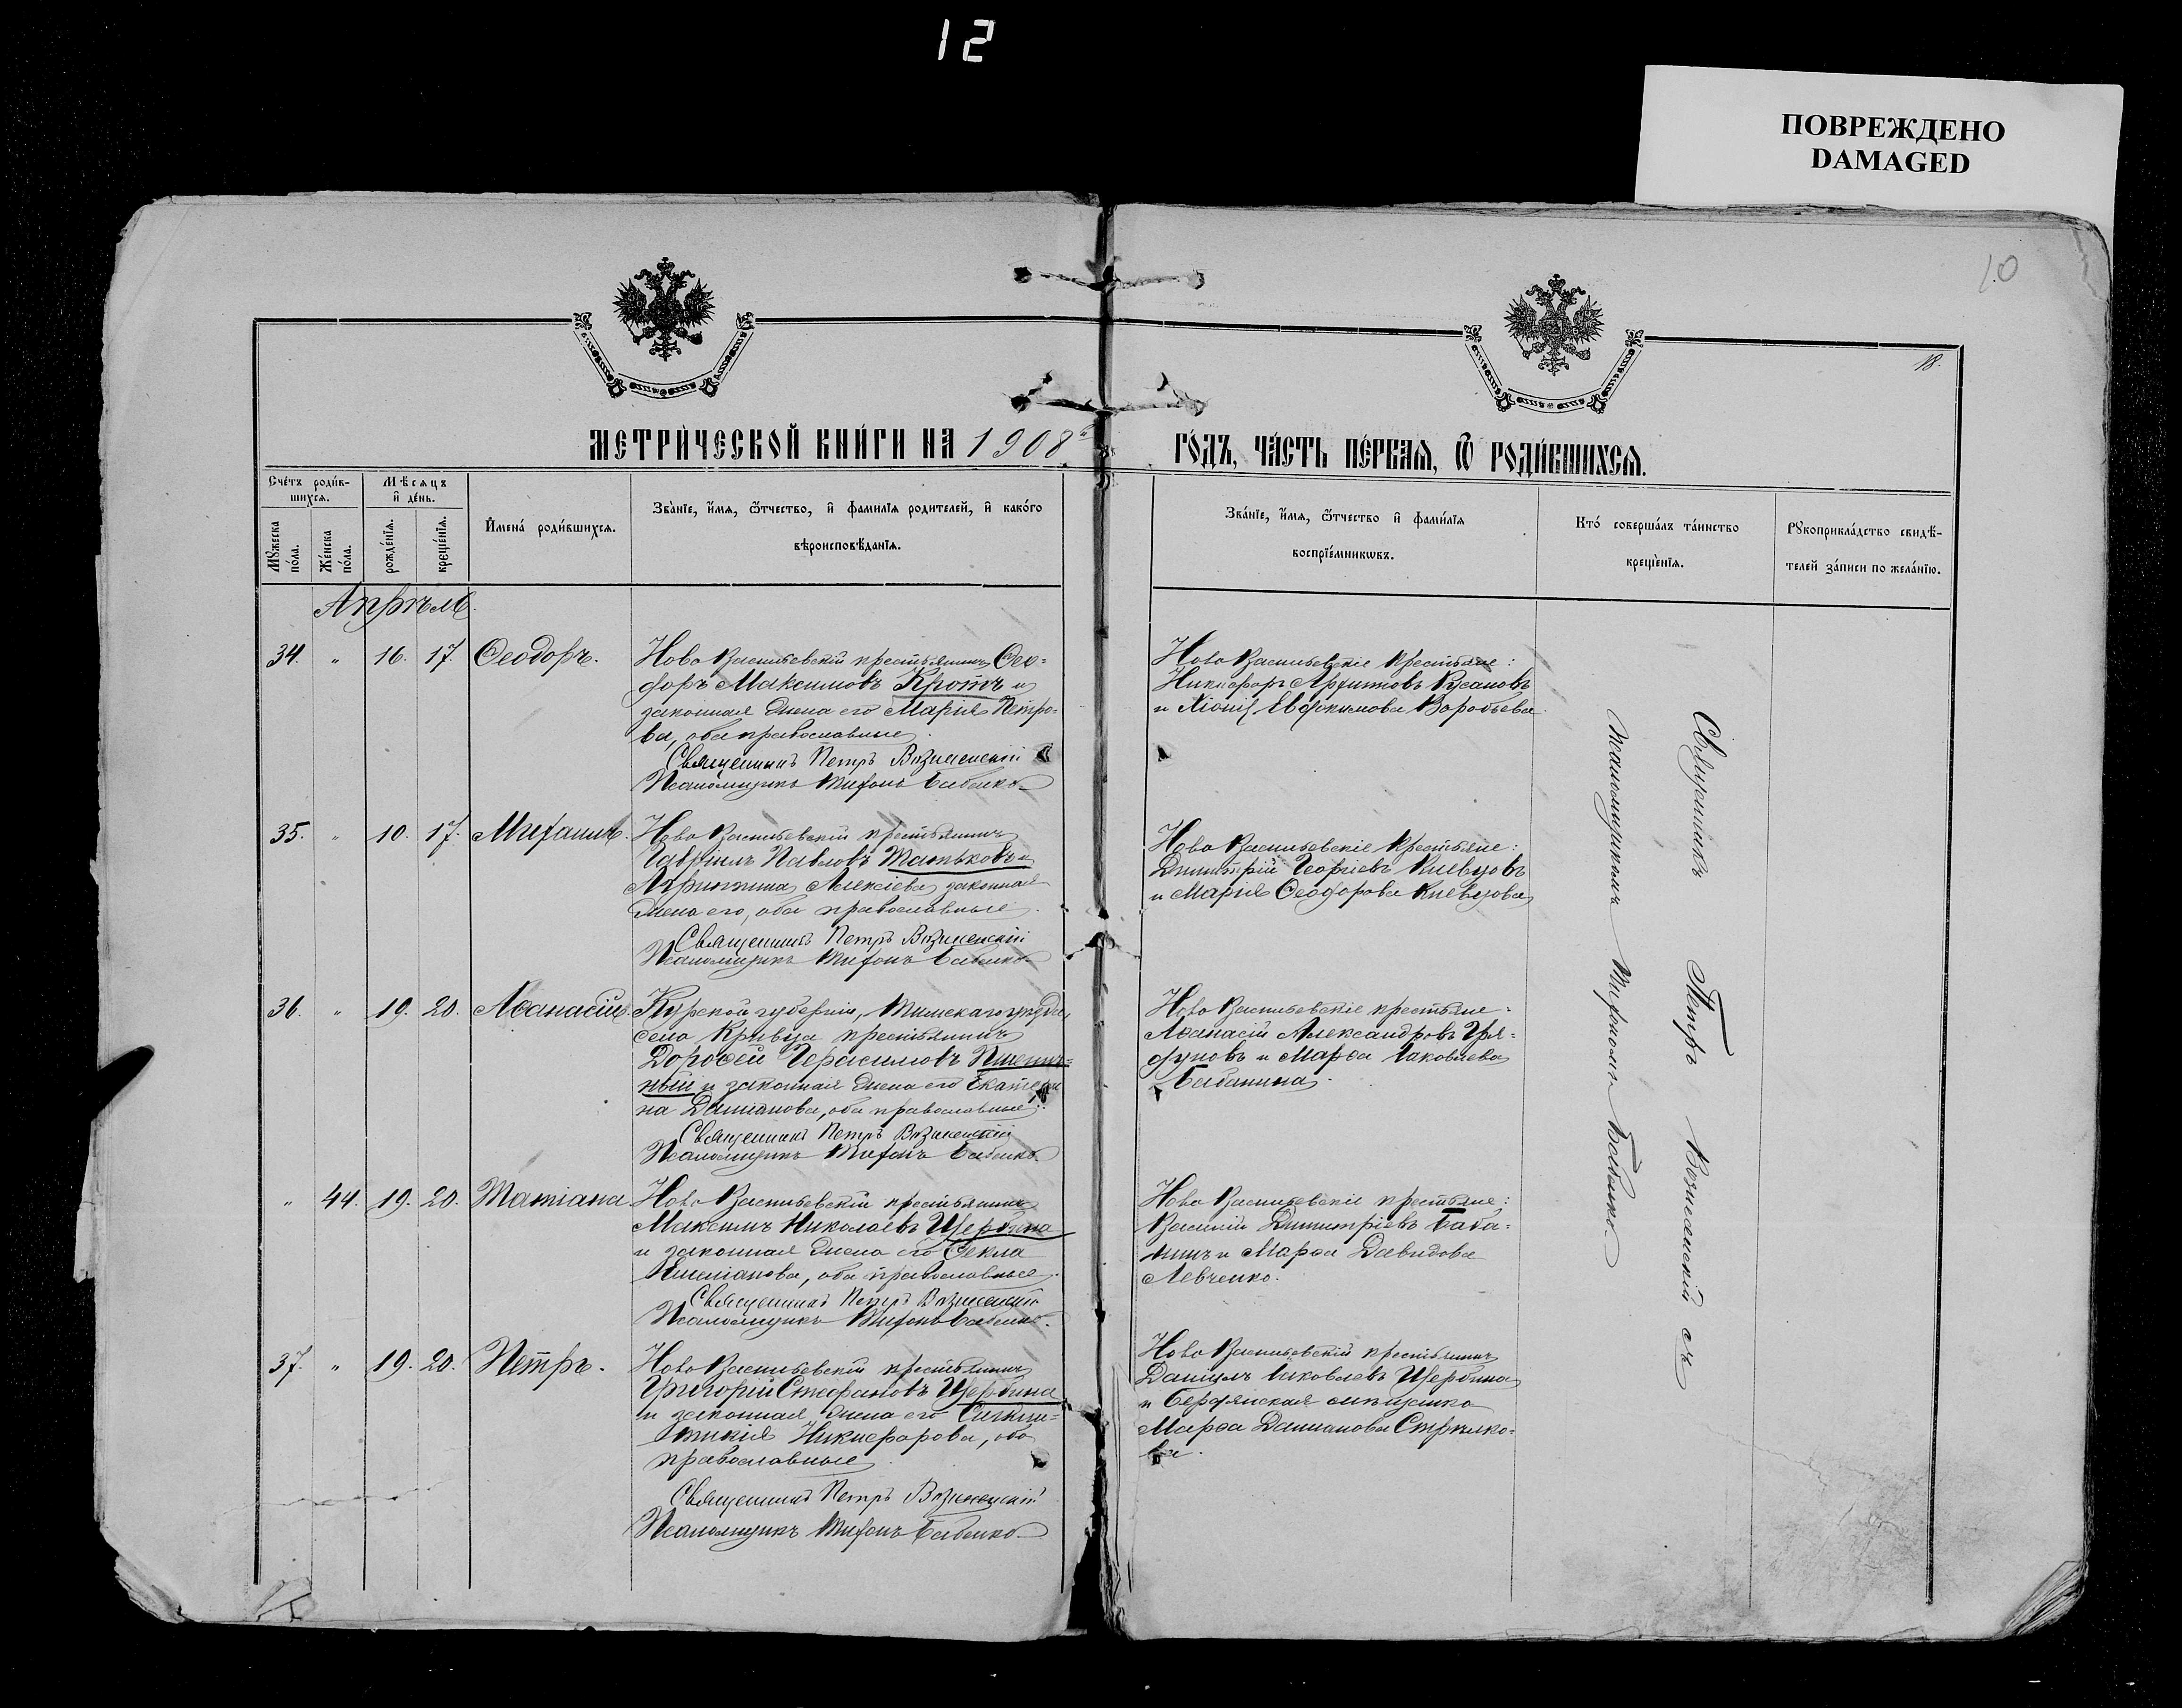 12
ПОВРЕЖДЕНО
DAMAGED
10
18.
МЕТРИ́ЧЕСКОЙ КНИ́ГИ НА 1908й
ГО́ДЪ, ЧА́СТЬ ПЕ́РВАѦ, Ѽ РОДИ́ВШИХСѦ.
Сче́тъ роди́в-
шихсѧ.
Мѣсѧцъ
и҆ де́нь.
Мꙋжеска по́ла.
Же́нска по́ла.
рожде́нїѧ.
креще́нїѧ.
И҆мена́ роди́вшихсѧ.
Зва́нїе, и҆́мѧ, ѻ҆́тчество, и҆ фамилїѧ родителей, и҆ како́го
вѣроисповѣ́данїѧ.
Зва́нїе, и҆́мѧ, ѻ҆́тчество и҆ фами́лїѧ
воспрїе́мникѡвъ.
Кто́ соверша́лъ та́инство
креще́нїѧ.
Рꙋкоприкла́дство свидѣ́-
телей за́писи по жела́нїю.
Апрѣль.
34. " 16. 17. Ѳеодоръ.
Ново Васильевскій крестьянинъ Ѳео=
доръ Максимовъ Кротъ и
законная жена его Марія Петро=
ва, оба православные.
Священникъ Петръ Вознесенскій
Псаломщикъ Тихонъ Бабенко
Ново Васильевскіе крестьяне:
Никифоръ Русановъ
и Евфимова Воробьева.
35. " 10. 17. Митрофанъ.
Ново Васильевскій крестьянинъ
Гавріилъ Павловъ Татьковъ и
Агриппина Алексіева законная
жена его, оба православные.
Священникъ Петръ Вознесенскій
Псаломщикъ Тихонъ Бабенко
Ново Васильевскіе крестьяне:
Димитрій Георгіевъ Киевцовъ
и Марія Ѳеодорова Киевцова
36. " 19. 20. Аѳанасій.
Курской губерніи, Тимскаго уѣзда,
села Кривца крестьянинъ
Дороѳей Герасимовъ Пшенич=
ный и законная жена его Екатери
на Даміанова, оба православные.
Священникъ Петръ Вознесенскій
Псаломщикъ Тихонъ Бабенко
Ново Васильевскіе крестьяне:
Аѳанасій Александровъ Гря=
дуновъ и Марѳа Іаковлева
Бабанина.
" 44. 19. 20. Татіана.
Ново Васильевскій крестьянинъ
Максимъ Николаевъ Щербина
и законная жена его Ѳекла
оба православные.
Священникъ Петръ Вознесенскій
Псаломщикъ Тихонъ Бабенко.
Ново Васильевскіе крестьяне:
Василій Димитріевъ Баба=
нинъ и Марѳа Давидова
Левченко.
37. " 19. 20. Петръ.
Ново Васильевскій крестьянинъ
Григорій Стефановъ Щербина
и законная жена его Синкли=
тикія Никифорова, оба
православные.
Священникъ Петръ Вознесенскій
Псаломщикъ Тихонъ Бабенко
Ново Васильевскій крестьянинъ
Даніилъ Іаковлевъ Щербина
и Бердянская мѣщанка
Марѳа Даміанова Стрѣлко=
ва.
Священникъ Петръ Вознесенскій съ
псаломщикомъ Тихономъ Бабенко